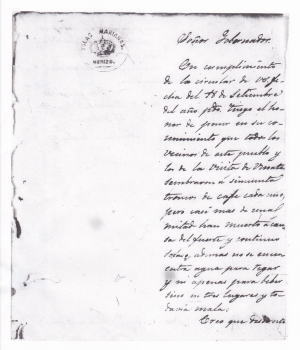 ISLAS MARIANAS
MERIZO.
Señor Gobernador.
En cumplimiento
de la circular de VS. fe
cha del 18 de Setiembre
del año pdo. tengo el ho-
nor de poner en su co-
nocimiento que todos los
vecinos de este pueblo y
los de la Visita de Umata
sembraron á cincuenta
troncos de café cada uno,
pero casi mas de cual
mitad han muerto á cau-
sa del fuerte y continuo
sol, ademas no se encu
entra agua para regar
y ni apenas para beber
sino en tres lugares y to-
davia mala;
Creo que